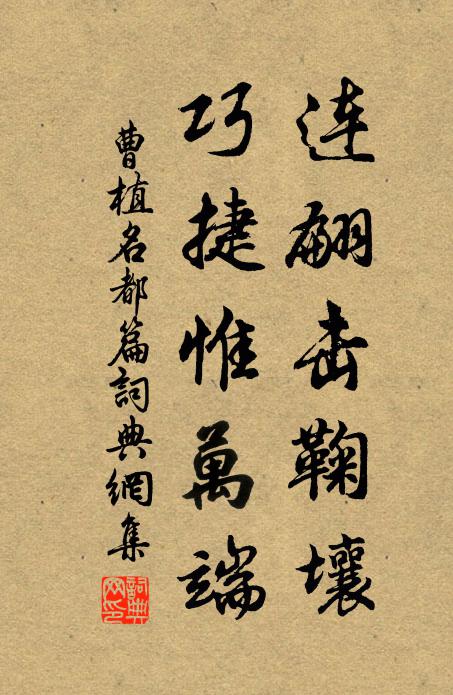 连翩击鞠壤
巧捷惟萬端
曹植名都篇詞典網集
詞典网印